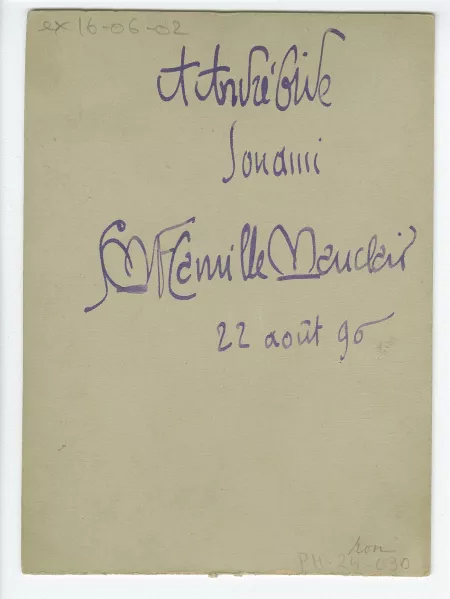 ex 16-06-02
A André Gide
Son ami
Camille Mauclair
22 août 95
PH-24-030